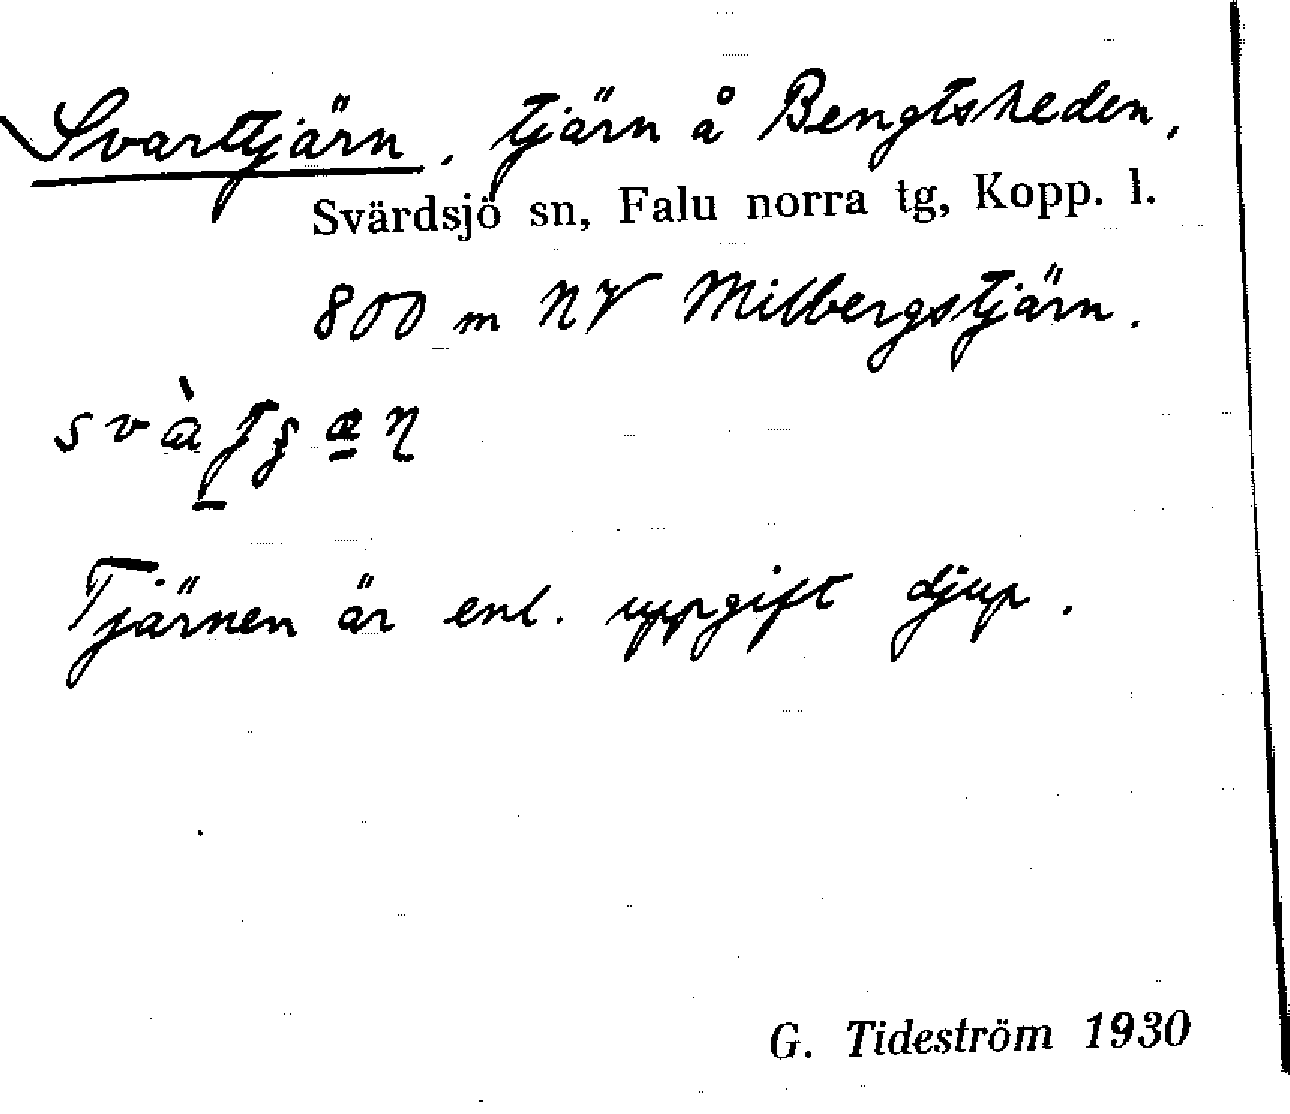 Svarttjärn, tjärn å Bengtsheden,
Svärdsjö sn, Falu norra tg, Kopp. l.
800 m NV Milbergstjärn.
Tjärnen är enl. uppgift djup.
G. Tideström 1930